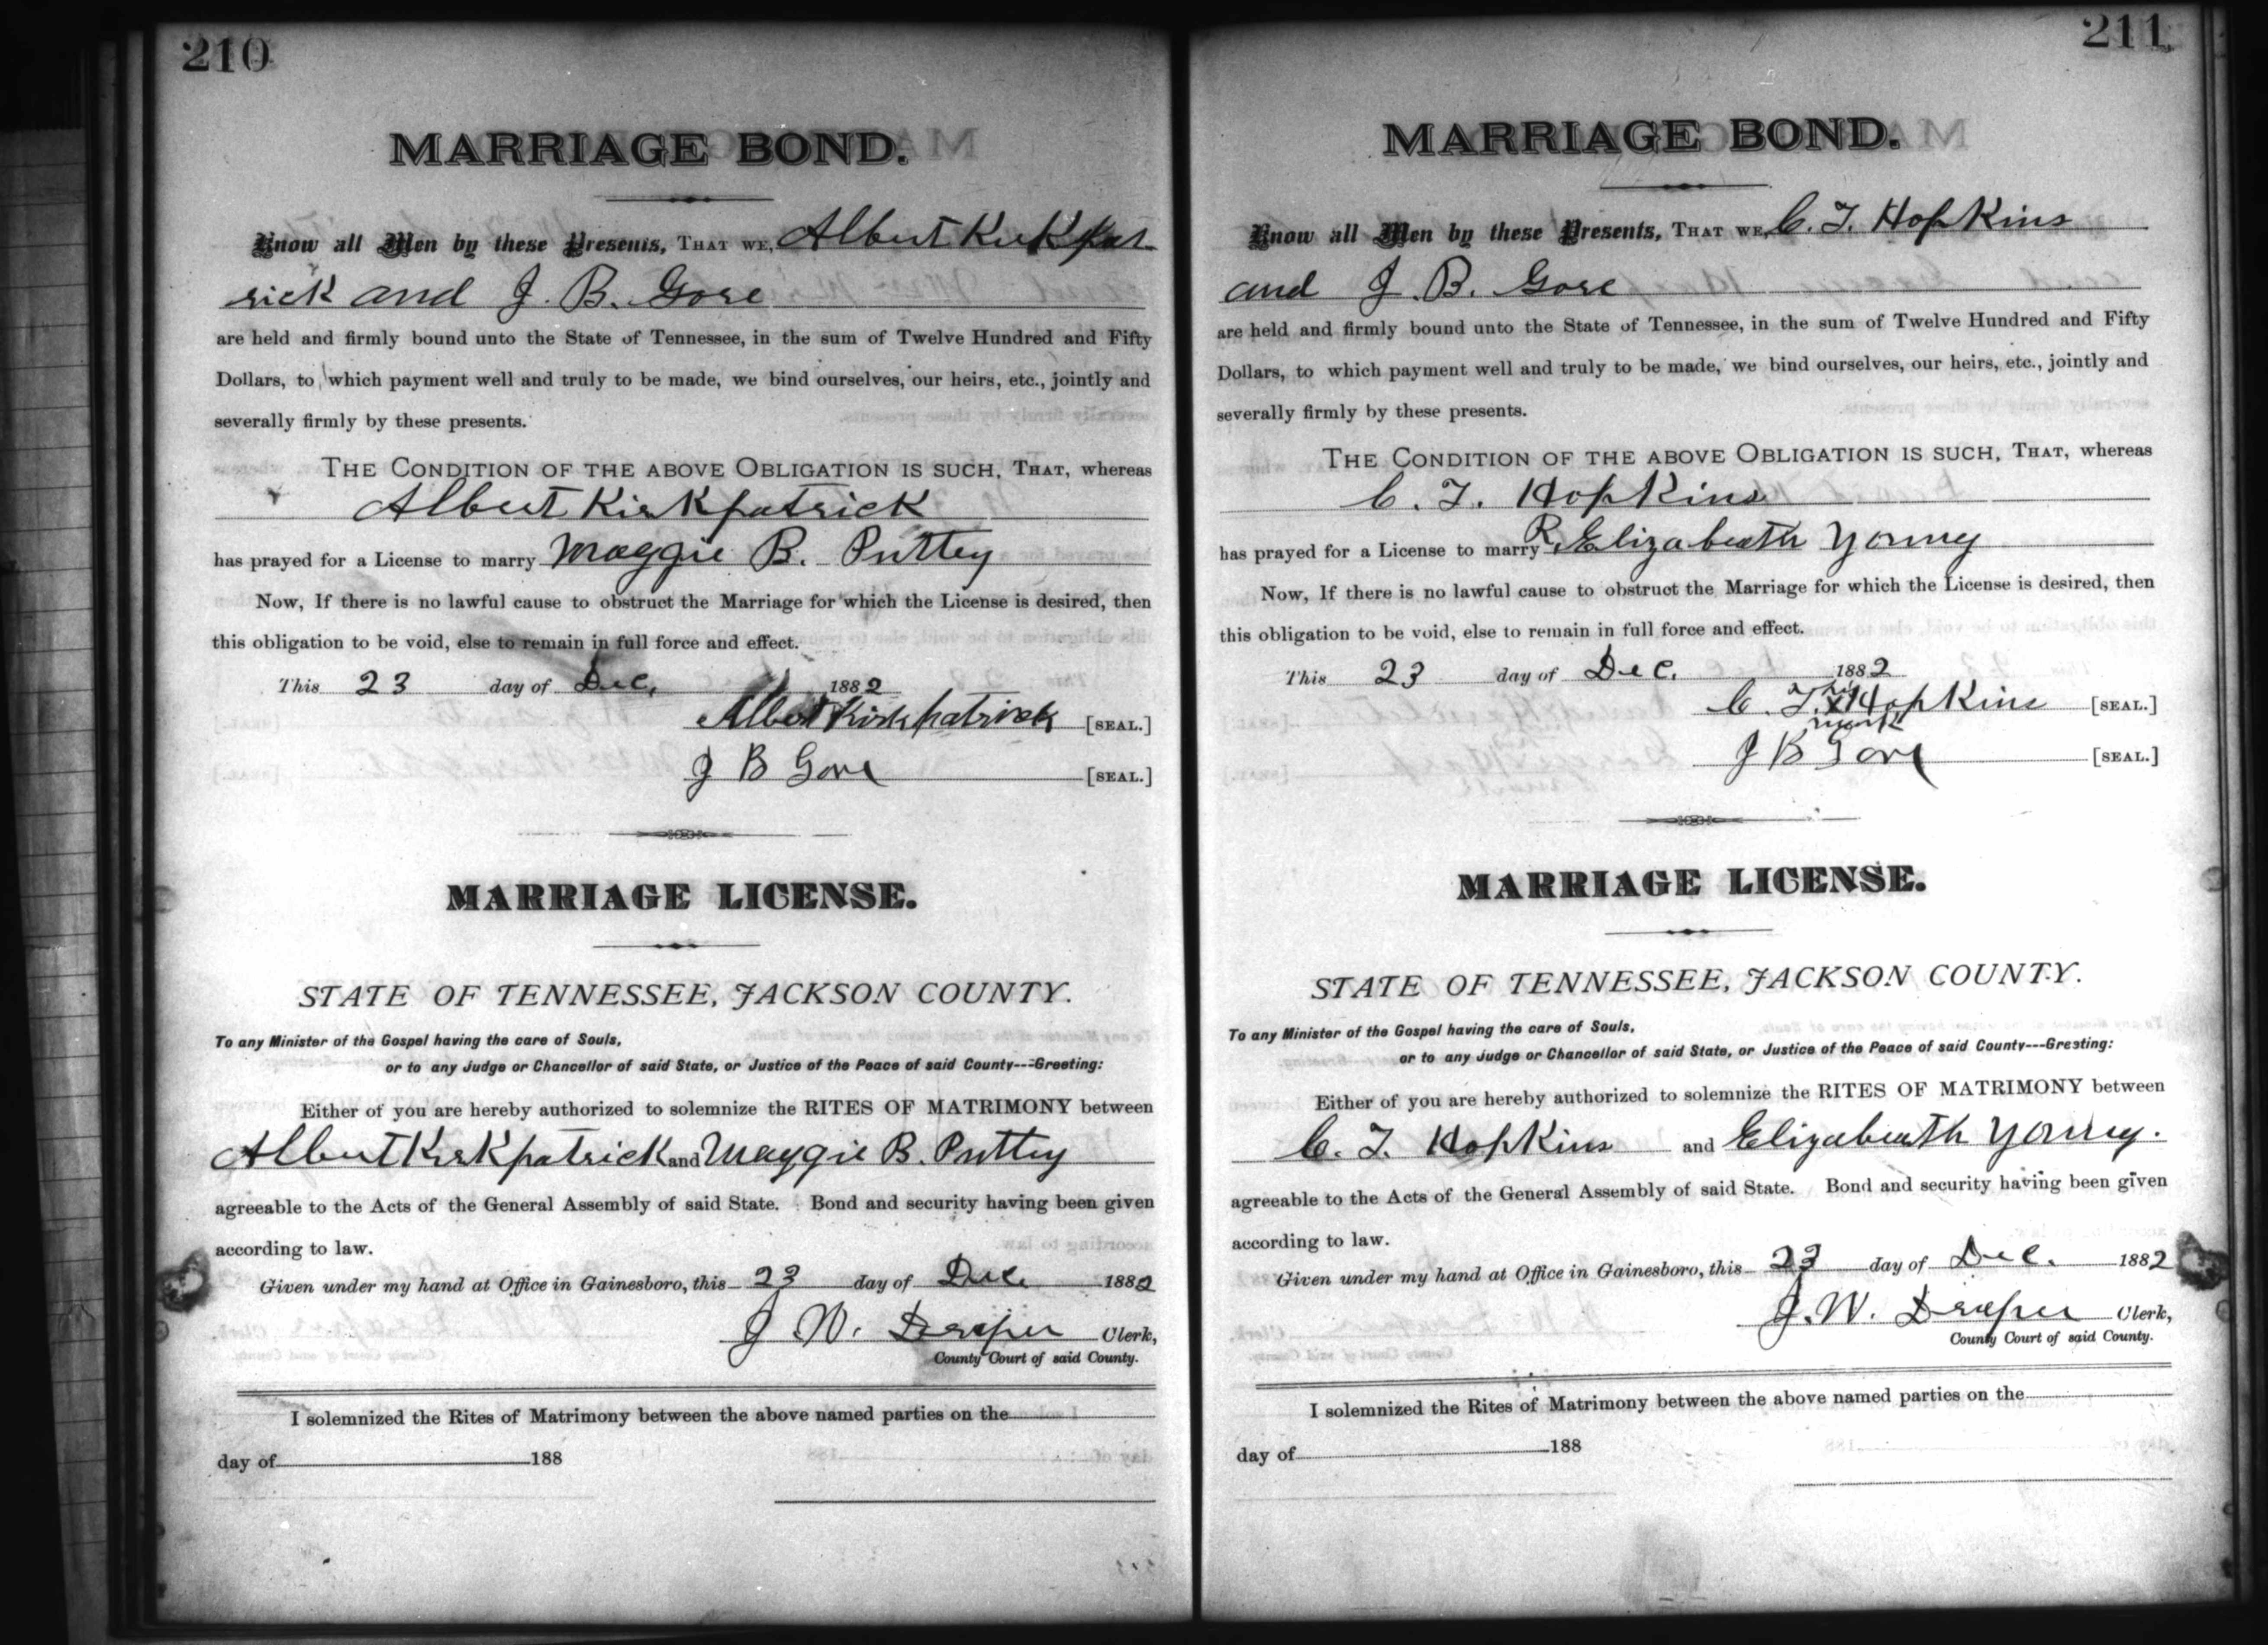 210
MARRIAGE BOND.
Know all Men by these Presents, THAT WE, Albert Kirkpat
rick and J. B. Gore
are held and firmly bound unto the State of Tennessee, in the sum of Twelve Hundred and Fifty
Dollars, to which payment well and truly to be made, we bind ourselves, our heirs, etc., jointly and
severally firmly by these presents.
THE CONDITION OF THE ABOVE OBLIGATION IS SUCH, THAT, whereas
Albert Kirkpatrick
has prayed for a License to marry Maggie B. Puttey
Now, If there is no lawful cause to obstruct the Marriage for which the License is desired, then
this obligation to be void, else to remain in full force and effect.
This 23 day of Dec. 1882
Albert Kirkpatrick [SEAL.]
J B Gore [SEAL.]
MARRIAGE LICENSE.
STATE OF TENNESSEE, JACKSON COUNTY.
To any Minister of the Gospel having the care of Souls,
or to any Judge or Chancellor of said State, or Justice of the Peace of said County---Greeting:
Either of you are hereby authorized to solemnize the RITES OF MATRIMONY between
Albert Kirkpatrick and Maggie B. Puttey
agreeable to the Acts of the General Assembly of said State. Bond and security having been given
according to law.
Given under my hand at Office in Gainesboro, this 23 day of Dec. 1882
J. W. Draper Clerk,
County Court of said County.
I solemnized the Rites of Matrimony between the above named parties on the
day of 188
211
MARRIAGE BOND.
Know all Men by these Presents, THAT WE, C. T. Hopkins
and J. B. Gore
are held and firmly bound unto the State of Tennessee, in the sum of Twelve Hundred and Fifty
Dollars, to which payment well and truly to be made, we bind ourselves, our heirs, etc., jointly and
severally firmly by these presents.
THE CONDITION OF THE ABOVE OBLIGATION IS SUCH, THAT, whereas
C. T. Hopkins
has prayed for a License to marry R. Elizabeath Young
Now, If there is no lawful cause to obstruct the Marriage for which the License is desired, then
this obligation to be void, else to remain in full force and effect.
This 23 day of Dec. 1882
his
C. T. x Hopkins [SEAL.]
mark
J B Gore [SEAL.]
MARRIAGE LICENSE.
STATE OF TENNESSEE, JACKSON COUNTY.
To any Minister of the Gospel having the care of Souls,
or to any Judge or Chancellor of said State, or Justice of the Peace of said County---Greeting:
Either of you are hereby authorized to solemnize the RITES OF MATRIMONY between
C. T. Hopkins and Elizabeath Young.
agreeable to the Acts of the General Assembly of said State. Bond and security having been given
according to law.
Given under my hand at Office in Gainesboro, this 23 day of Dec. 1882
J. W. Draper Clerk,
County Court of said County.
I solemnized the Rites of Matrimony between the above named parties on the
day of 188